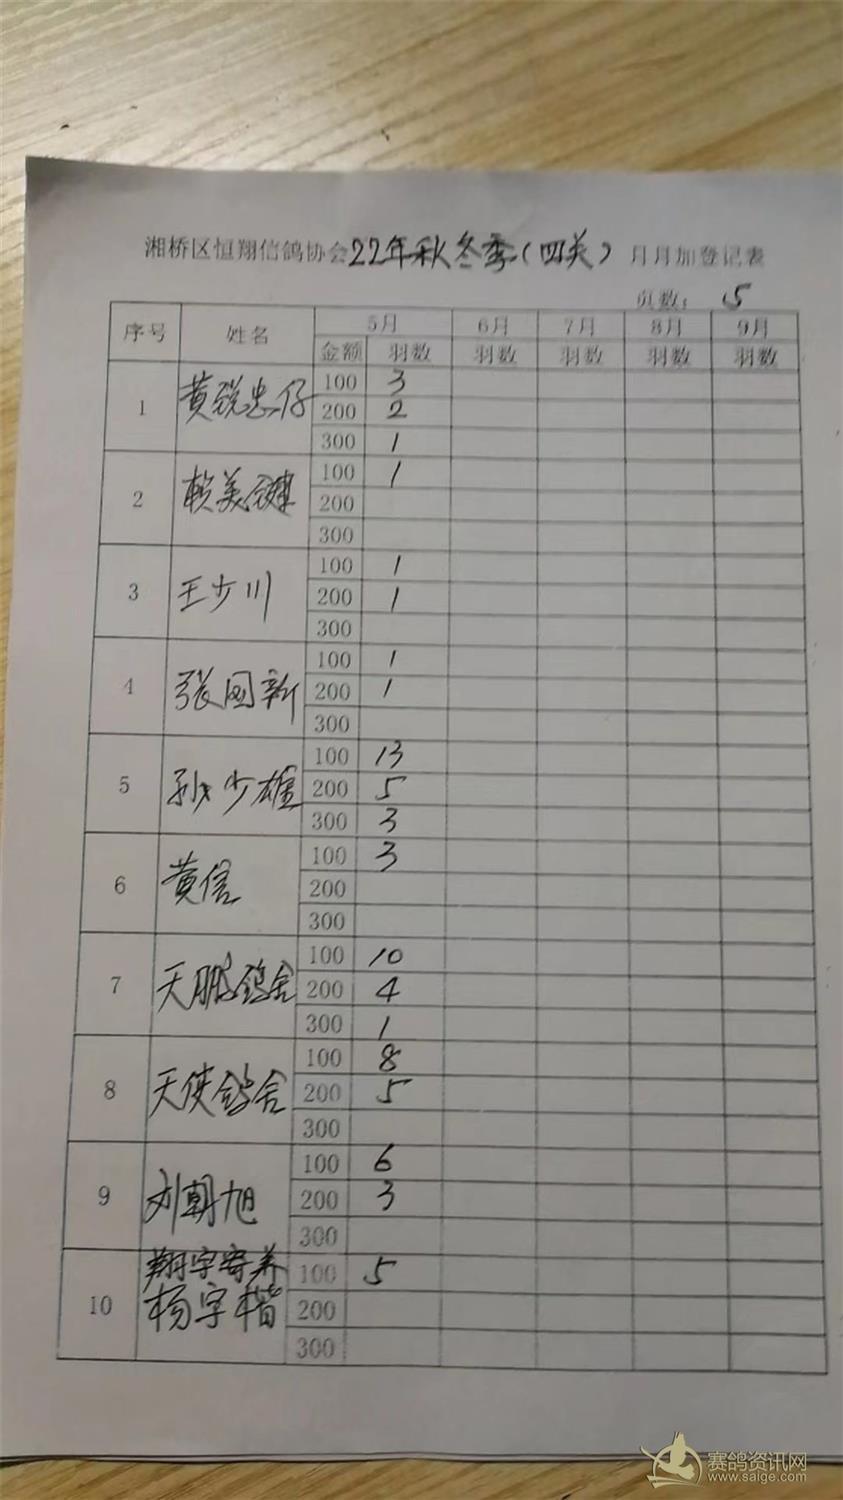 湘桥区恒翔信鸽协会22年秋冬季(四关)月月加登记表
页数: 5
序号 姓名 5月 6月 7月 8月 9月
金额 羽数 羽数 羽数 羽数 羽数
1 黄锐忠仔 100 3
200 2
300 1
2 赖美健 100 1
200
300
3 王少川 100 1
200 1
300
4 张国新 100 1
200 1
300
5 孙少雄 100 13
200 5
300 3
6 黄信 100 3
200
300
7 天鹏鸽舍 100 10
200 4
300 1
8 天使鸽舍 100 8
200 5
300
9 刘朝旭 100 6
200 3
300
10 翔宇寄养 100 5
杨宇楷 200
300
赛鸽资讯网
www.saige.com